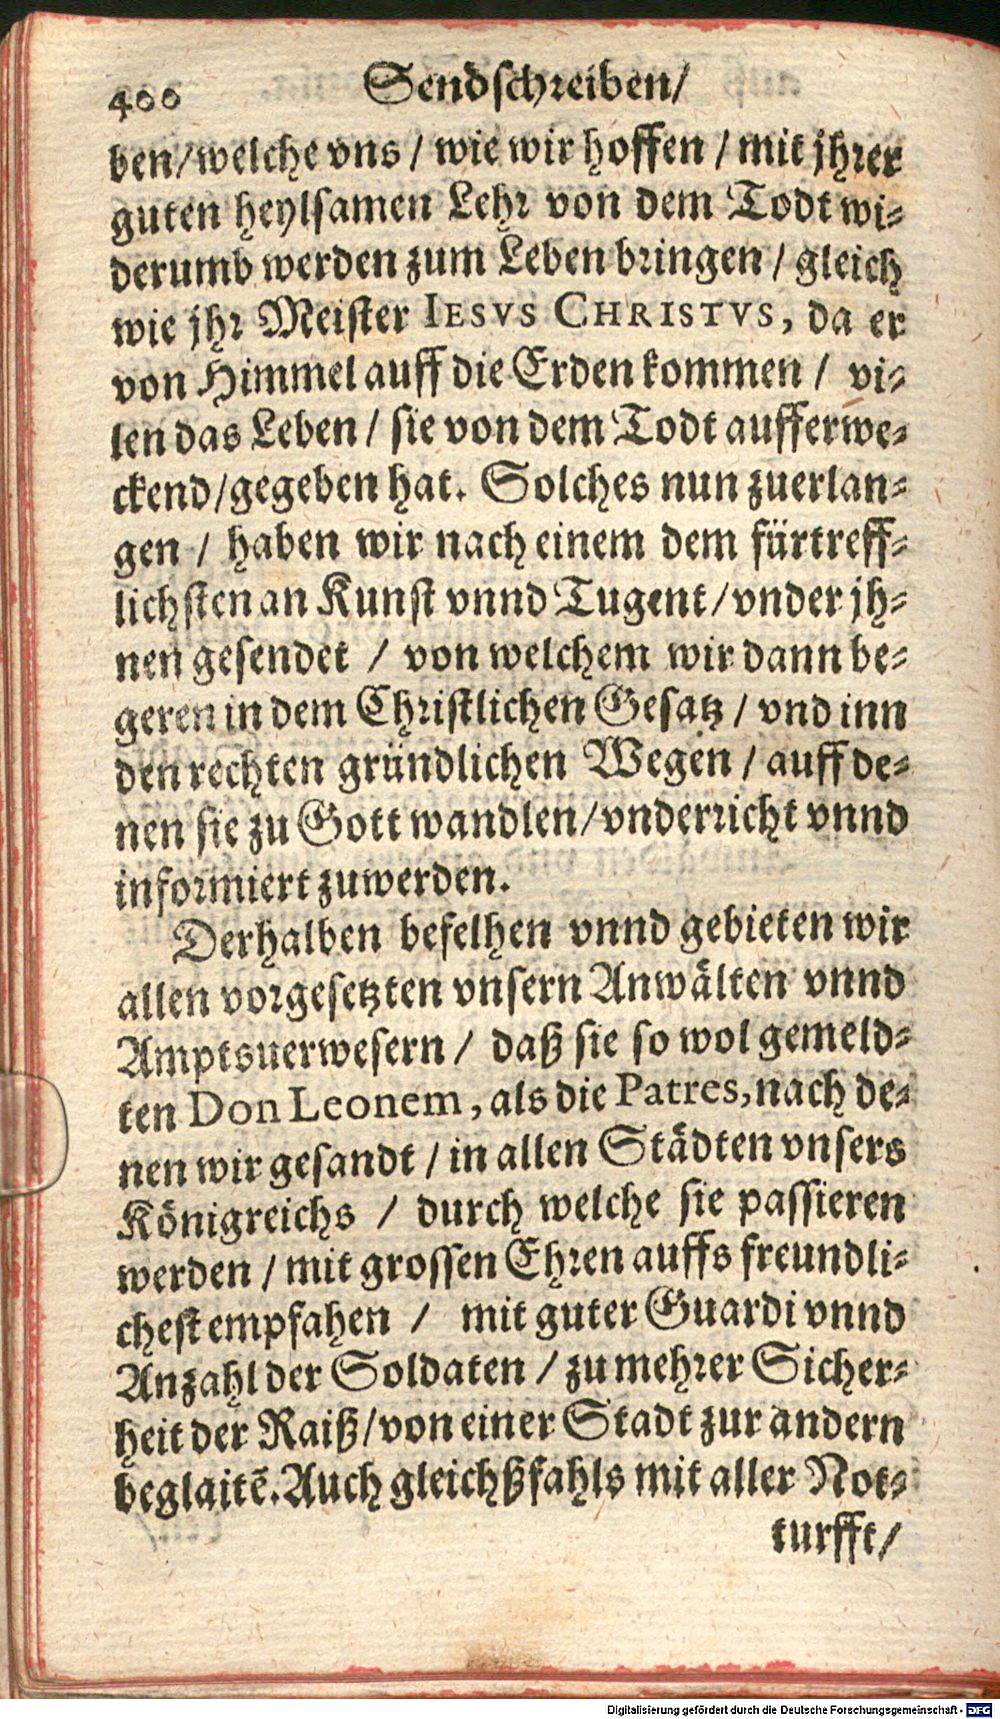 400 Sendschreiben/
ben/welche vns / wie wir hoffen / mit jhrer
guten heylsamen Lehr von dem Todt wi-
derumb werden zum Leben bringen / gleich
wie jhr Meister IESVS CHRISTVS, da er
von Himmel auff die Erden kommen / vi-
len das Leben / sie von dem Todt aufferwe-
ckend/gegeben hat. Solches nun zuerlan-
gen / haben wir nach einem dem fürtreff-
lichsten an Kunst vnnd Tugent/vnder jh-
nen gesendet / von welchem wir dann be-
geren in dem Christlichen Gesatz / vnd inn
den rechten gründlichen Wegen / auff de-
nen sie zu Gott wandlen/vnderricht vnnd
informiert zuwerden.
Derhalben befelhen vnnd gebieten wir
allen vorgesetzten vnsern Anwälten vnnd
Amptsuerwesern / daß sie so wol gemeld-
ten Don Leonem, als die Patres, nach de-
nen wir gesandt / in allen Städten vnsers
Königreichs / durch welche sie passieren
werden / mit grossen Ehren auffs freundli-
chest empfahen / mit guter Guardi vnnd
Anzahl der Soldaten / zu mehrer Sicher-
heit der Raiß/von einer Stadt zur andern
beglaitē. Auch gleichßfahls mit aller Not-
turfft/
Digitalisierung gefördert durch die Deutsche Forschungsgemeinschaft - DFG